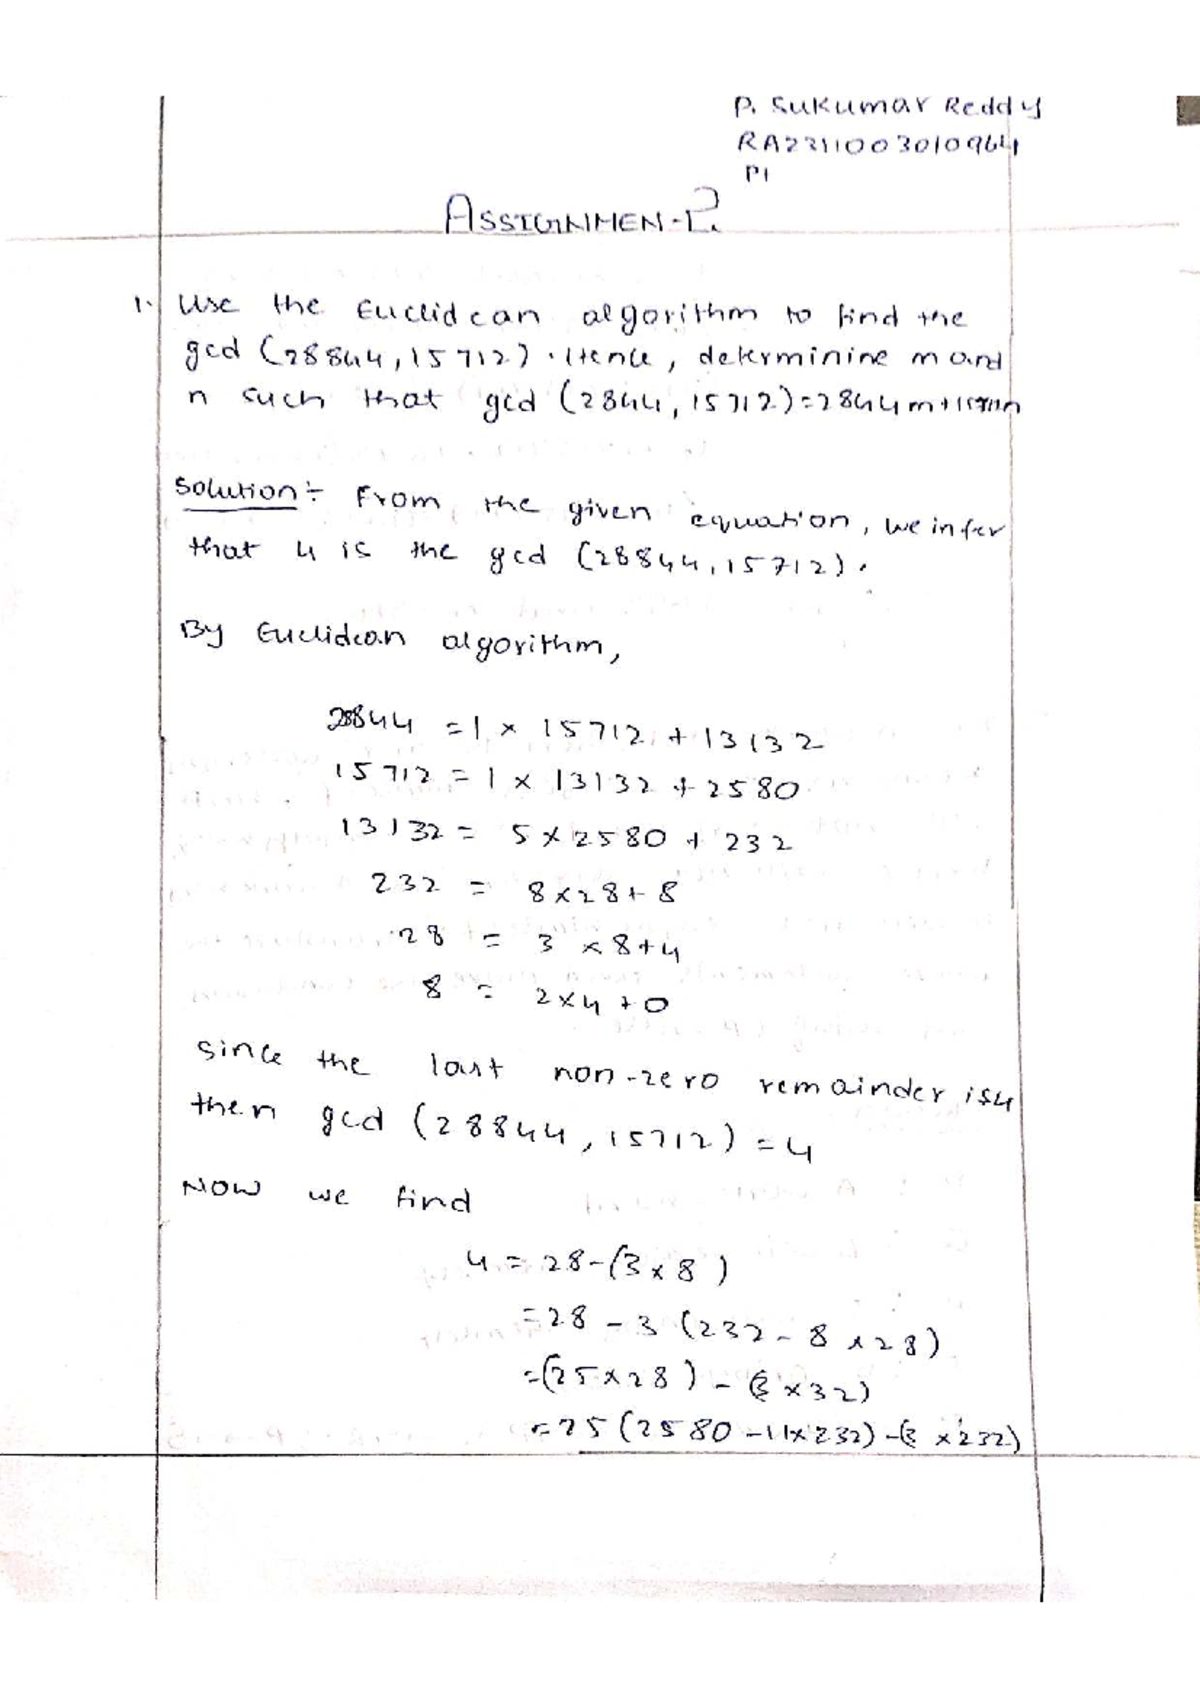 P. Sukumar Reddy
RA2311003010964
P1
ASSIGNMEN-2.
1. Use the Euclidean algorithm to find the
gcd (28844, 15712). Hence, determinine m and
n such that gcd (2844, 15712)=2844m+15712n
Solution:- From the given equation, we infer
that 4 is the gcd (28844, 15712).
By Euclidean algorithm,
28844 = 1 × 15712 + 13132
15712 = 1 × 13132 + 2580
13132 = 5 × 2580 + 232
232 = 8×28+8
28 = 3 × 8+4
8 = 2×4 +0
Since the last non-zero remainder is 4
then gcd (28844, 15712) = 4
Now we find
4 = 28-(3×8)
=28 - 3 (232 - 8 × 28)
=(25×28) - (3 ×32)
=25 (2580 -11×232) -(3 ×232)